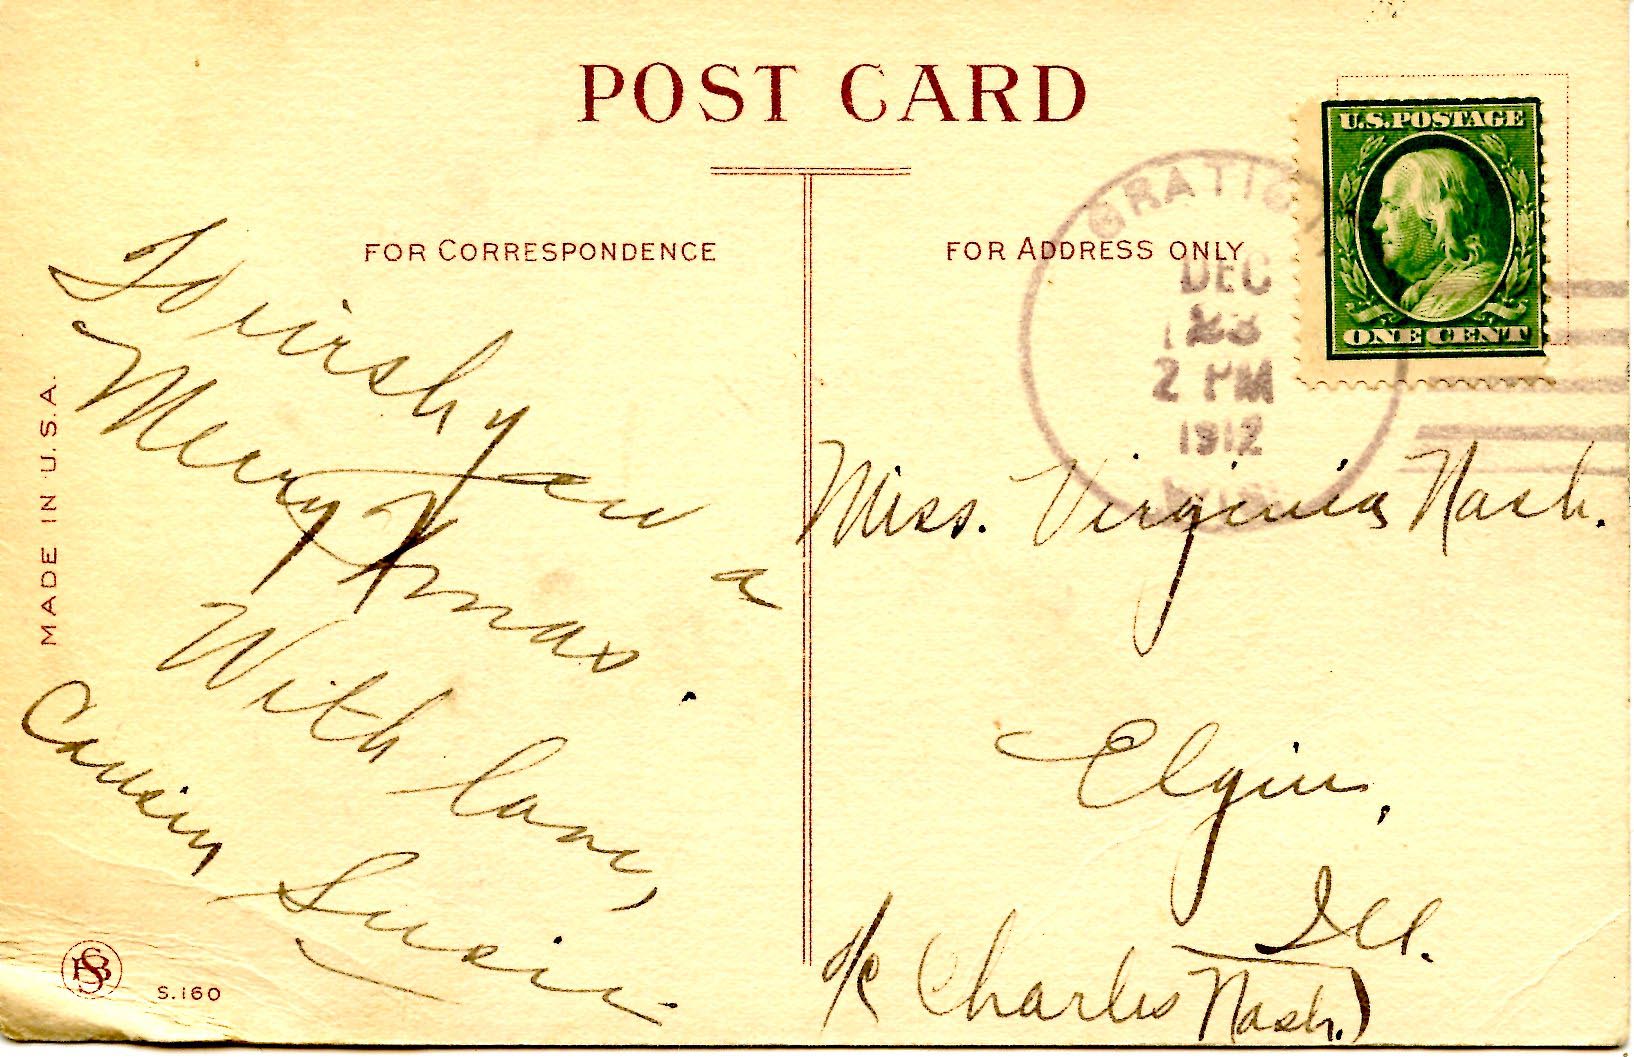 POST CARD
U.S. POSTAGE
ONE CENT
GRATIOT
DEC
23
2 PM
1912
FOR CORRESPONDENCE
FOR ADDRESS ONLY
To wish you a
Merry Xmas.
With love,
Cousin Susie
Miss. Virginia Nash.
Elgin,
Ill.
c/o Charles Nash.)
MADE IN U.S.A.
S.160